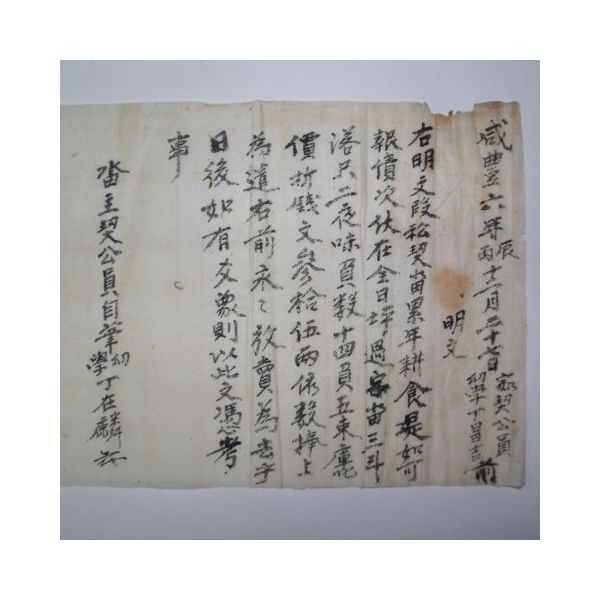 咸豊六年丙辰十二月二十七日 契公員幼學丁昌吉前
明文
右明文段松契畓累年耕食是如可
報債次伏在全日坪 過字畓三斗
落只二夜味負数十四負五束庫乙
價折錢文參拾伍兩依數捧上
為遣右前永々放賣為去乎
日後如有友象則以此文憑考
事
畓主契公員自筆幼學丁在麟